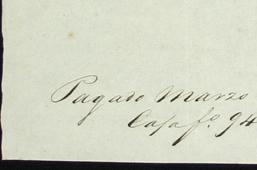 Pagado Marzo
Caja fo. 94